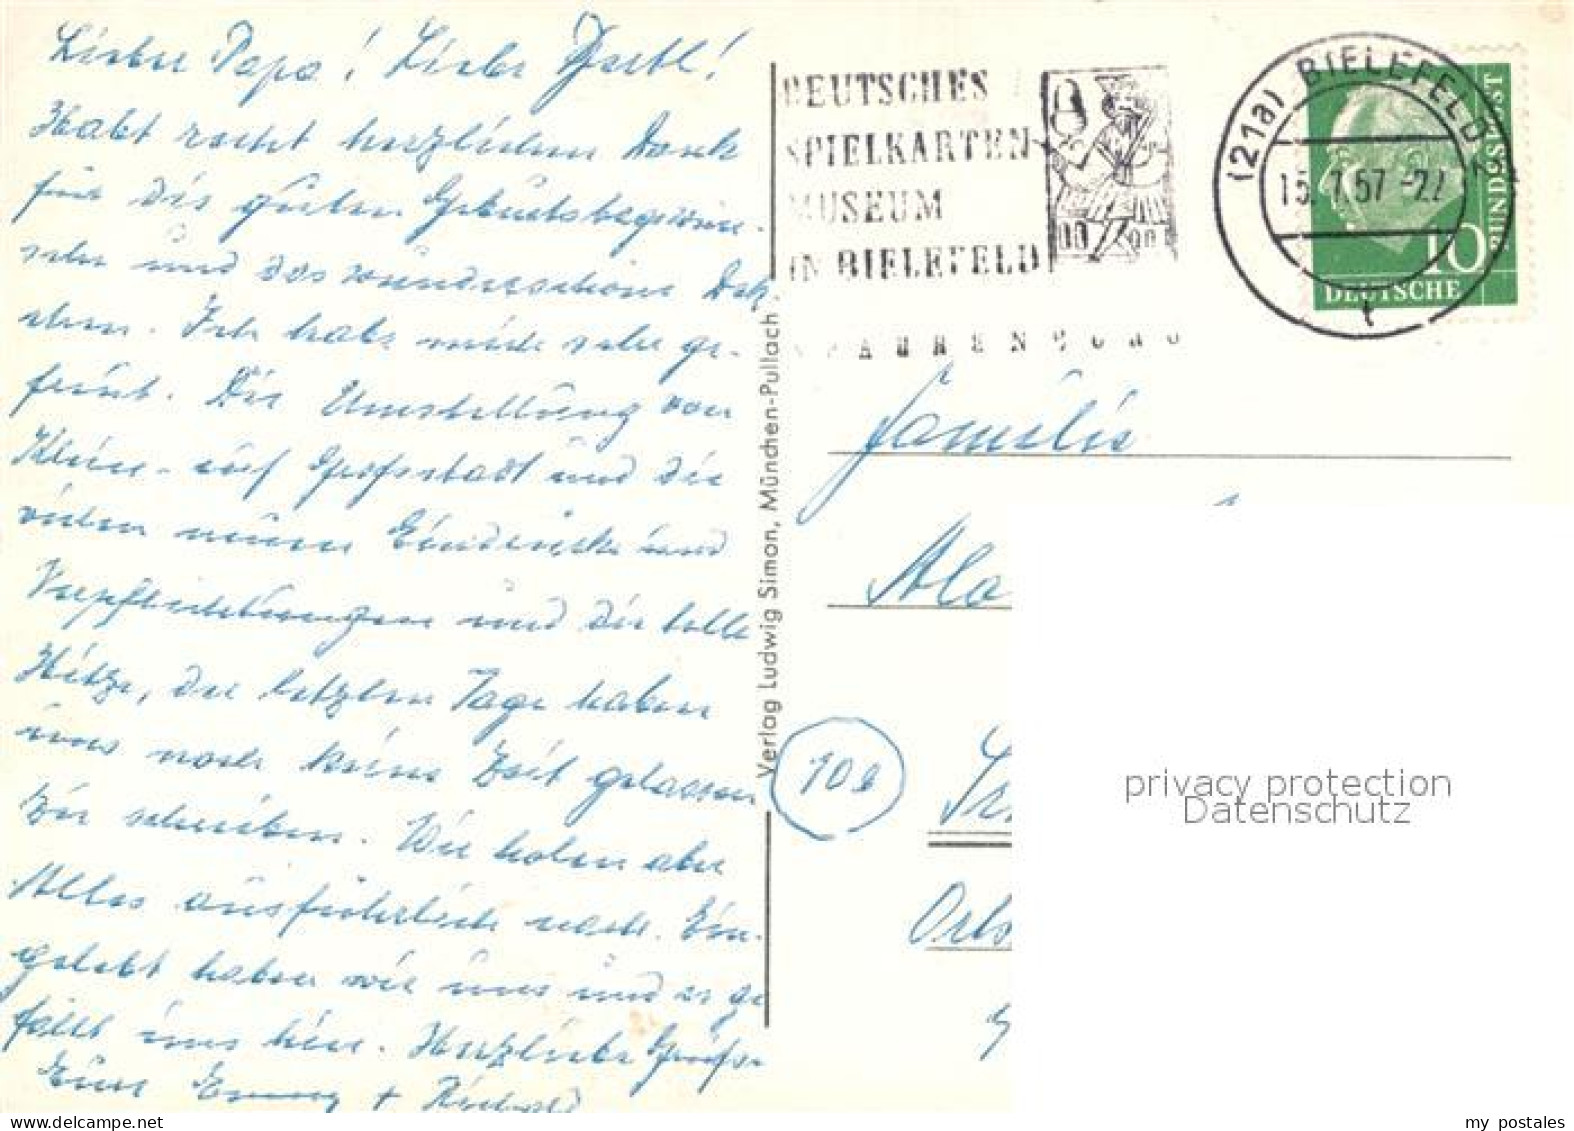 Lieber Papa! Liebe Gretl!
Habt recht herzlichen Dank
für die guten Geburtstagswün-
sche und das wunderschöne Dek-
chen. Ich habe mich sehr ge-
freut. Die Umstellung von
Klein- auf Großstadt und die
vielen neuen Eindrücke und
Verpflichtungen und die tolle
Hitze, die letzten Tage haben
uns noch keine Zeit gelassen
zu schreiben. Wir holen aber
Alles ausführlich nach. Ein-
gelebt haben wir uns und es ge
fällt uns hier. Herzliche Grüße
Eure Emmy +
Verlag Ludwig Simon, München-Pullach
DEUTSCHES
SPIELKARTEN-
MUSEUM
IN BIELEFELD
(21a) BIELEFELD 2
15.7.57-22
t
10
DEUTSCHE
BUNDESPOST
Familie
Alo
10b
Orts
privacy protection
Datenschutz
my postales